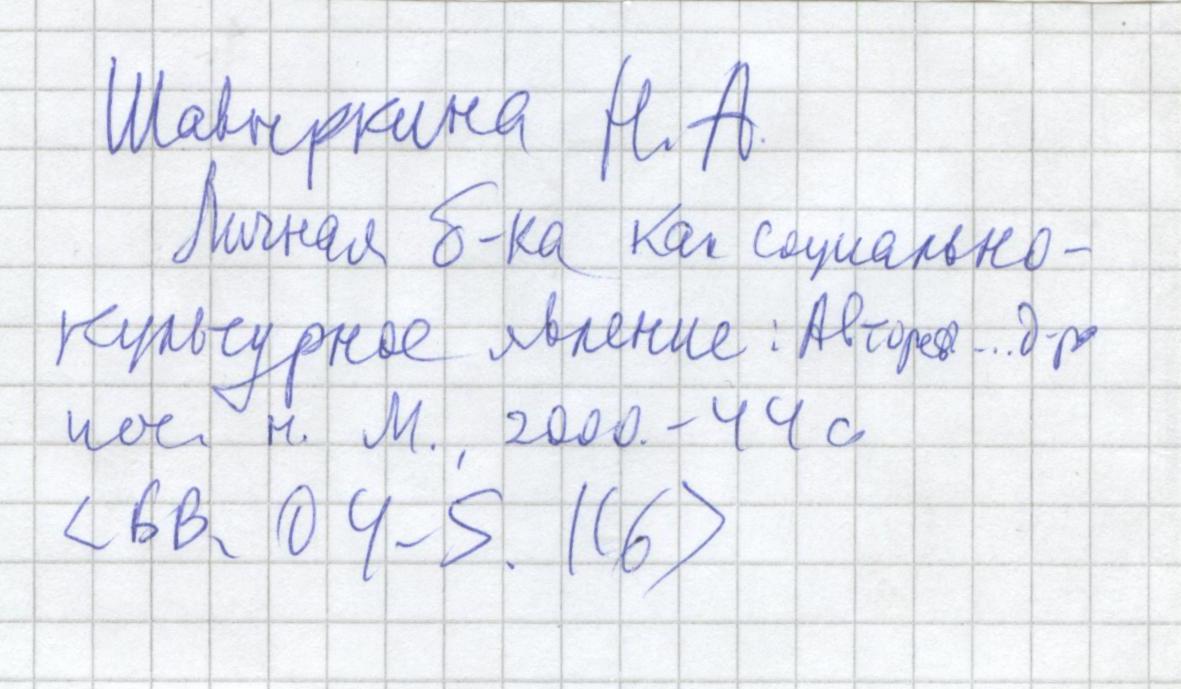 Шавыркина Н. А.
Личная б-ка как социально-
культурное явление : Автореф. ... д-ра
ист. н. М., 2000. - 44 с
<ВВ. 04-5. 116>